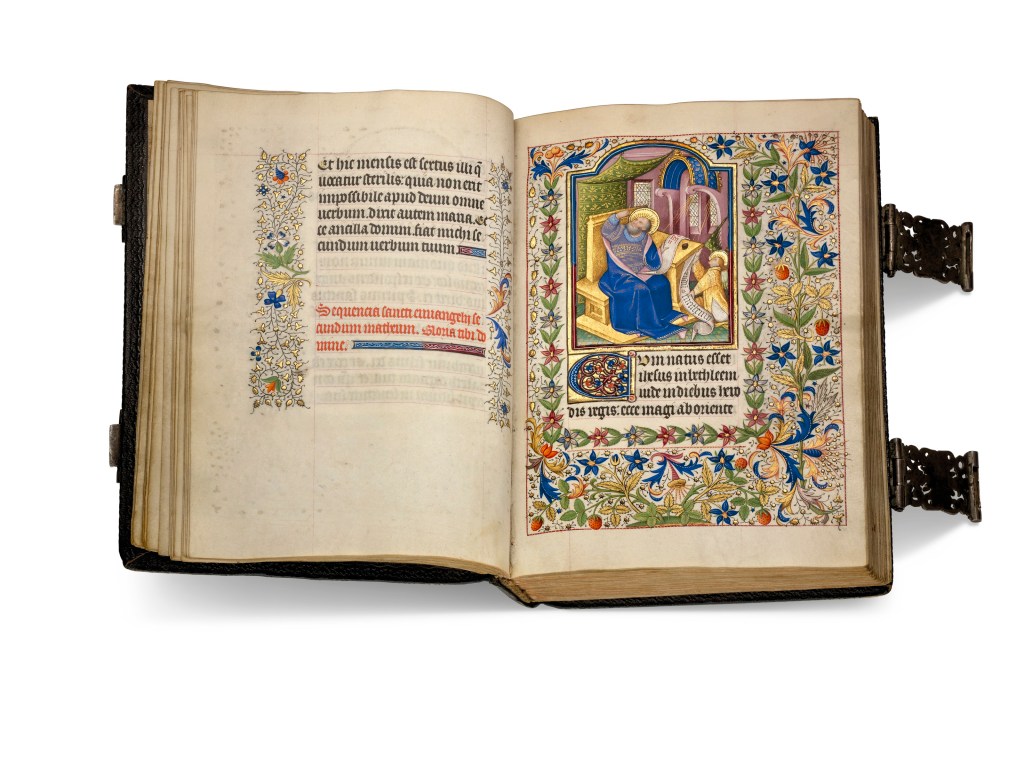 Et hic mensis est sextus illi q̄
uocatur sterilis: quia non erit
impossibile apud deum omne
uerbum. dixit autem maria. Ec
ce ancilla domini. fiat michi se
cundum uerbum tuum.
Sequencia sancti euuangelij se
cundum matheum. Gloria tibi do
mine.
Cum natus esset
ihesus in bethleem
iude in diebus hero
dis regis: ecce magi ab oriente